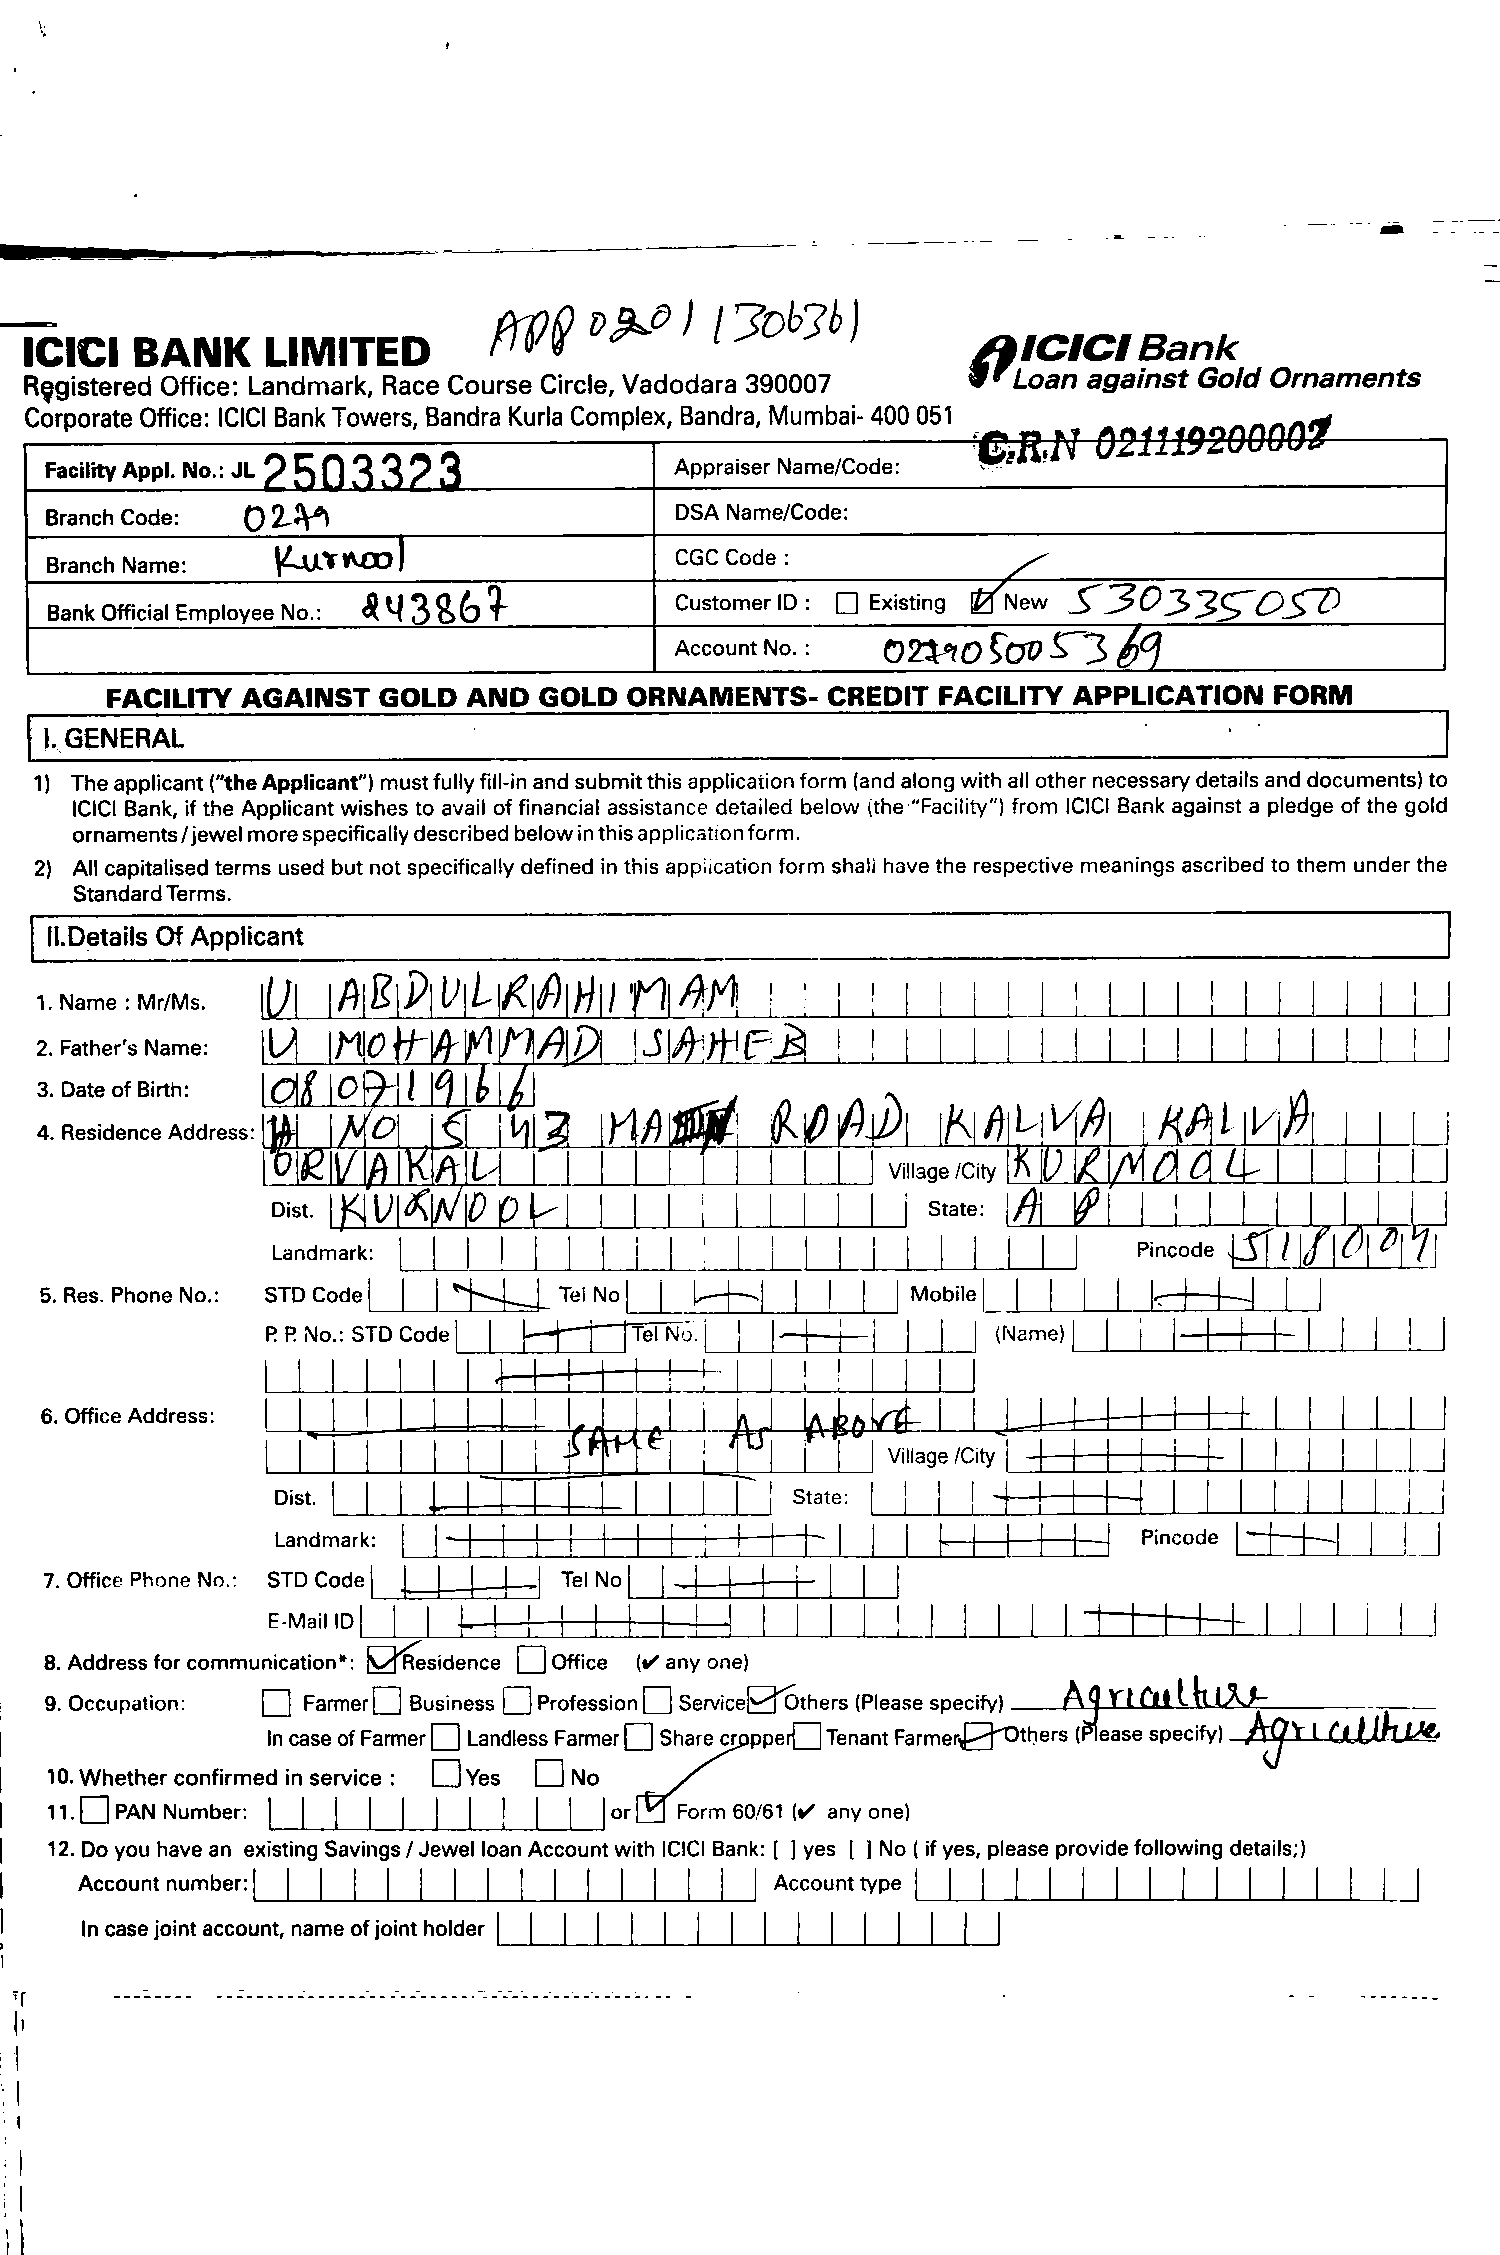 APP02011306361
ICICI BANK LIMITED
ICICI Bank
Registered Office: Landmark, Race Course Circle, Vadodara 390007
Loan against Gold Ornaments
Corporate Office: ICICI Bank Towers, Bandra Kurla Complex, Bandra, Mumbai- 400 051
C.R.N 021119200007
Facility Appl. No.: JL 2503323 Appraiser Name/Code:
Branch Code: 0279 DSA Name/Code:
Branch Name: Kurnool CGC Code :
Bank Official Employee No.: 243867 Customer ID : Existing New 530335050
Account No. : 027905005369
FACILITY AGAINST GOLD AND GOLD ORNAMENTS- CREDIT FACILITY APPLICATION FORM
I. GENERAL
1) The applicant ("the Applicant") must fully fill-in and submit this application form (and along with all other necessary details and documents) to
ICICI Bank, if the Applicant wishes to avail of financial assistance detailed below (the "Facility") from ICICI Bank against a pledge of the gold
ornaments / jewel more specifically described below in this application form.
2) All capitalised terms used but not specifically defined in this application form shall have the respective meanings ascribed to them under the
Standard Terms.
II.Details Of Applicant
1. Name : Mr/Ms. U ABDULRAHIMAM
2. Father's Name: U MOHAMMAD SAHEB
3. Date of Birth: 08071966
4. Residence Address: H NO 5 143 ROAD KALVA KALVA
ORVAKAL Village /City KURMOOL
Dist. KURNOOL State: A P
Landmark: Pincode 518004
5. Res. Phone No.: STD Code Tel No Mobile
P. P. No.: STD Code Tel No. (Name)
6. Office Address:
SAME As ABOVE
Village /City
Dist. State:
Landmark: Pincode
7. Office Phone No.: STD Code Tel No
E-Mail ID
8. Address for communication*: Residence Office (✔ any one)
9. Occupation: Farmer Business Profession Service Others (Please specify) Agriculture
In case of Farmer Landless Farmer Share cropper Tenant Farmer Others (Please specify) Agriculture
10. Whether confirmed in service : Yes No
11. PAN Number: or Form 60/61 (✔ any one)
12. Do you have an existing Savings / Jewel loan Account with ICICI Bank: [ ] yes [ ] No ( if yes, please provide following details;)
Account number: Account type
In case joint account, name of joint holder